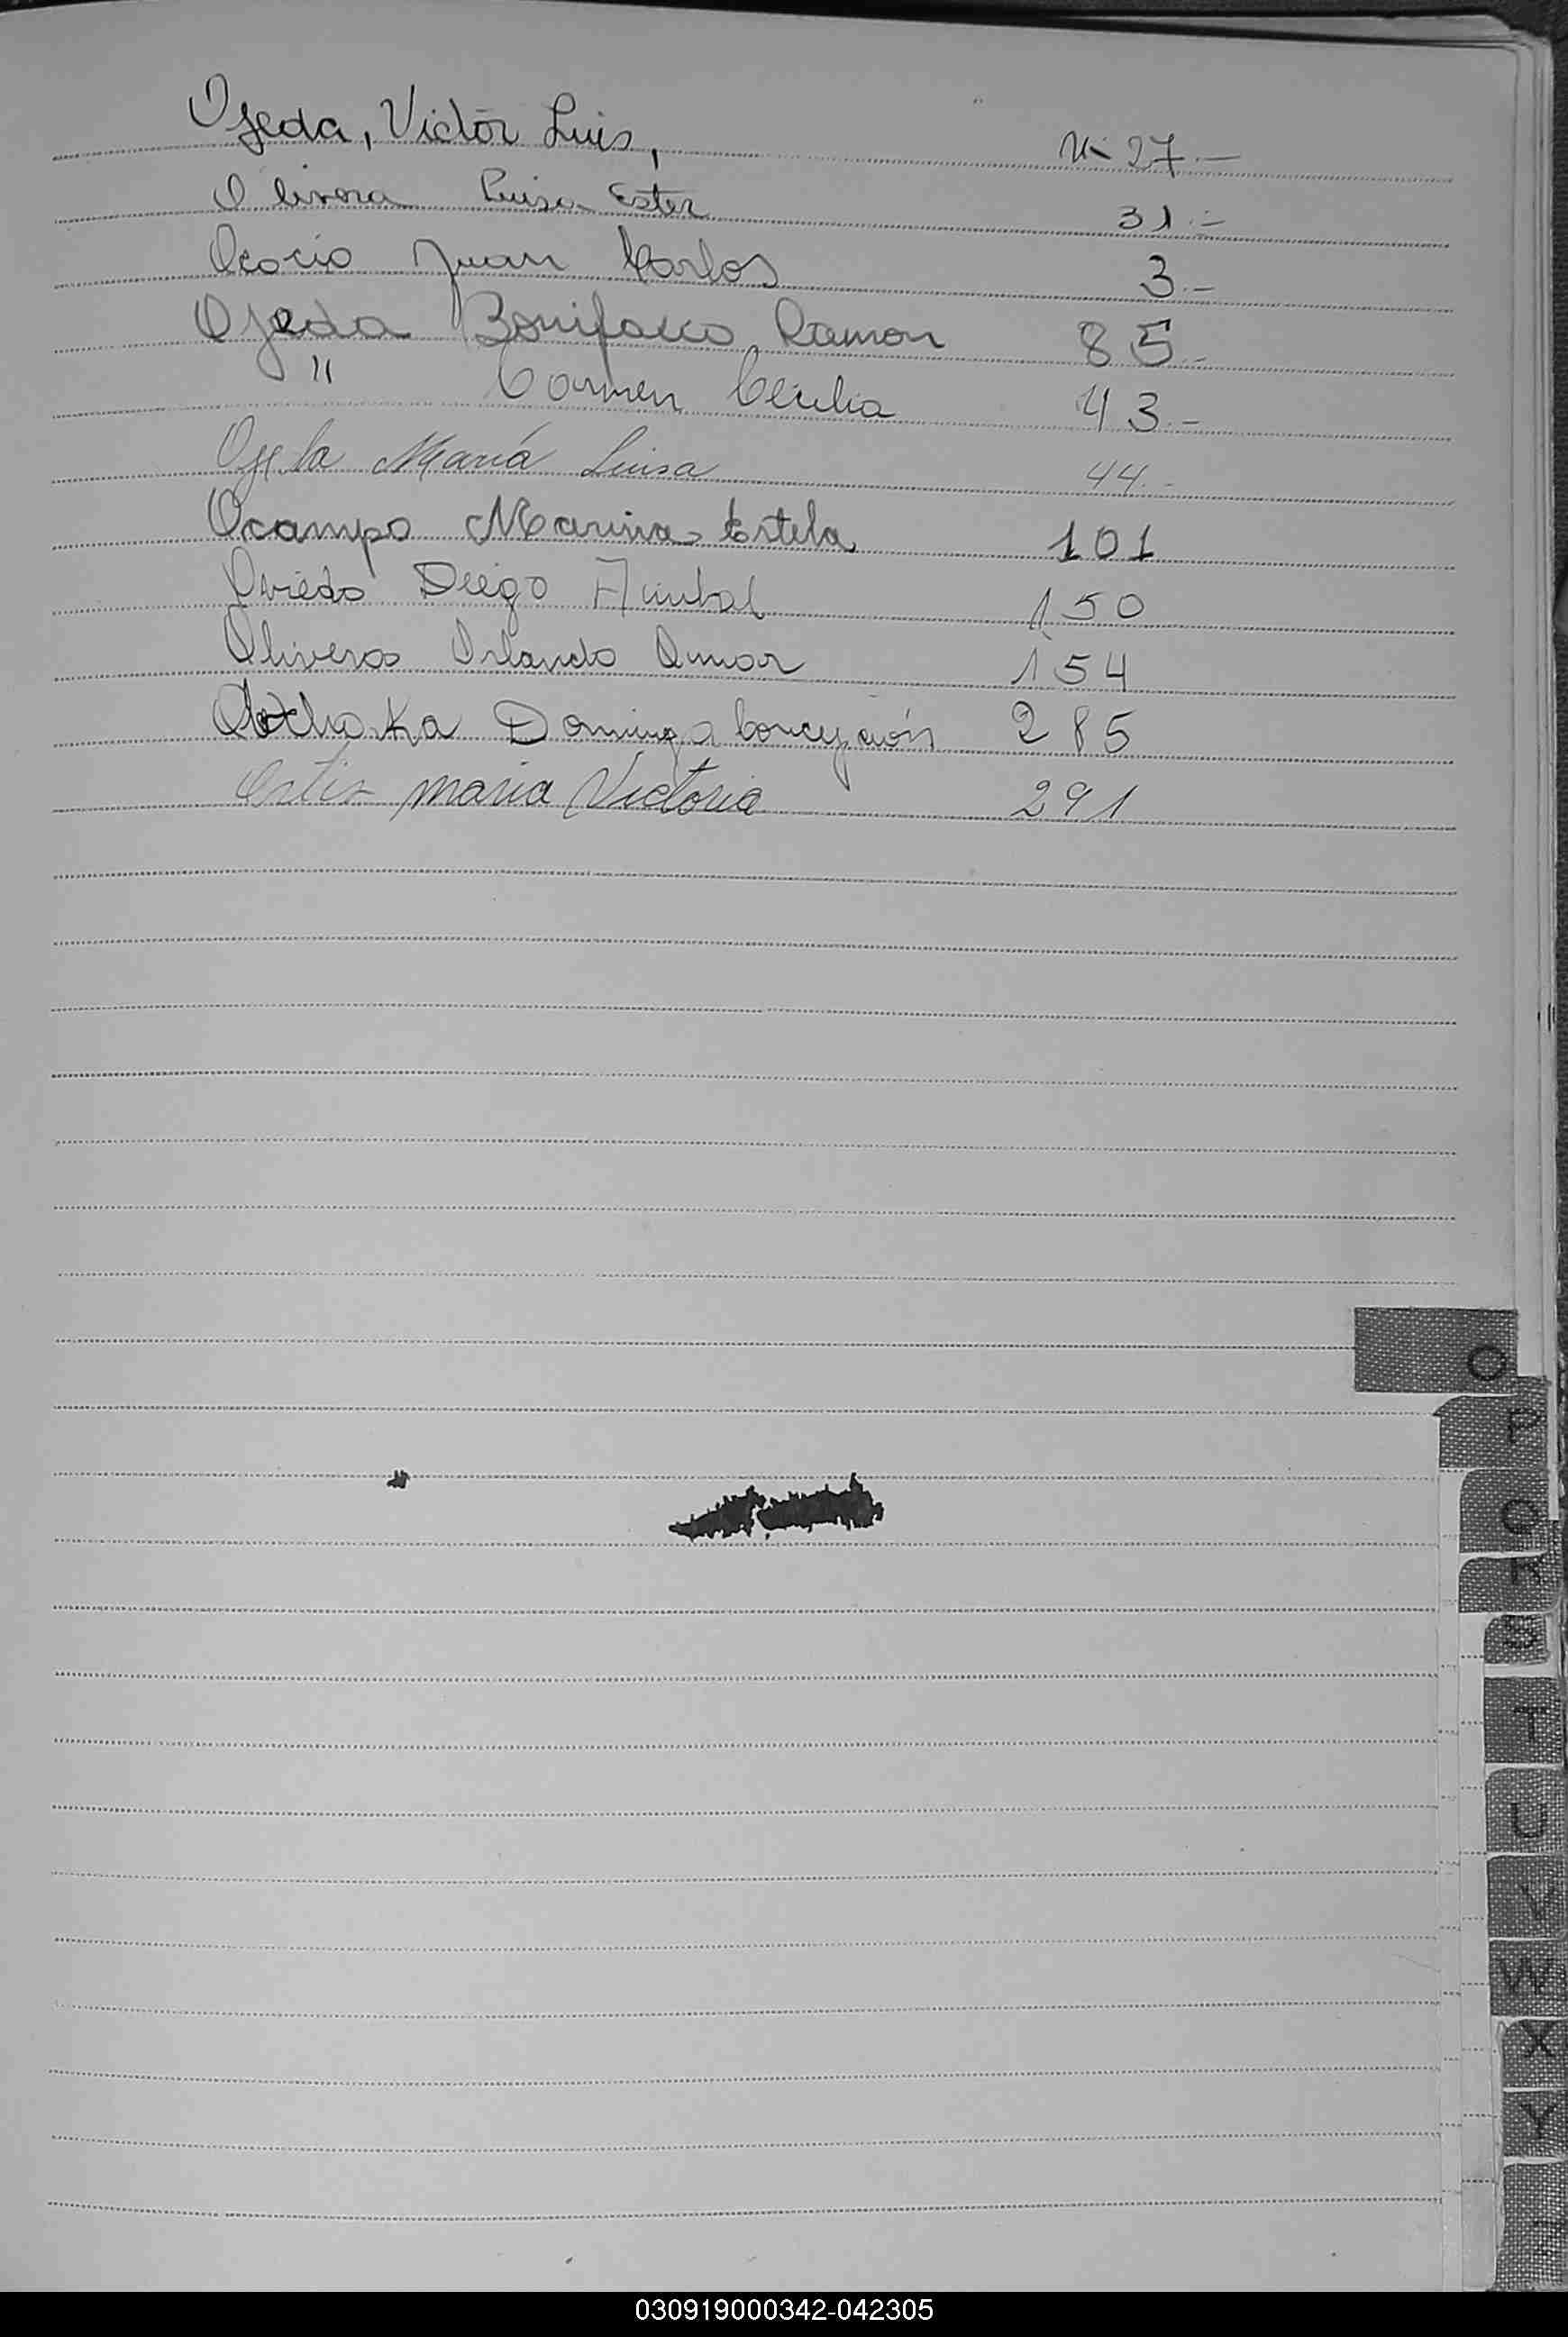 Ojeda, Victor Luis, Nº 27.-
Olivera Luisa Ester 31.-
Ococio Juan Carlos 3.-
Ojeda Bonifacio Ramon 85.-
" Carmen Cecilia 43.-
María Luisa 44.-
Ocampo Marina Estela 101
Oviedo Diego Anibal 150
Oliveros Orlando Omar 154
Dominga Concepción 285
Ortiz maria Victoria 291
O
P
Q
R
S
T
U
V
W
X
Y
Z
030919000342-042305